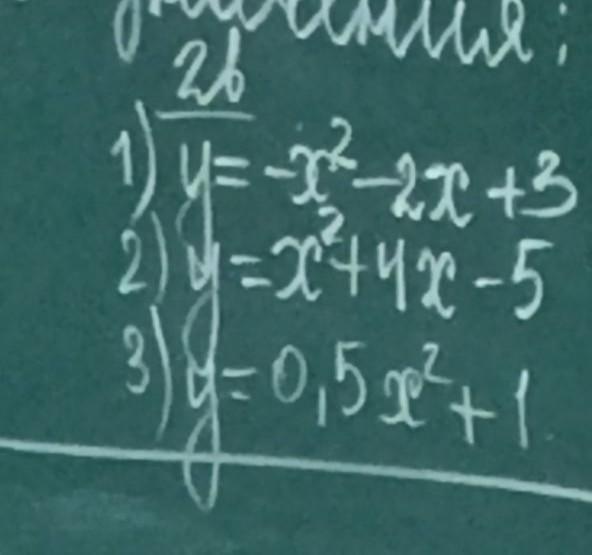 2в
1) y = -x² - 2x + 3
2) y = x² + 4x - 5
3) y = 0,5x² + 1